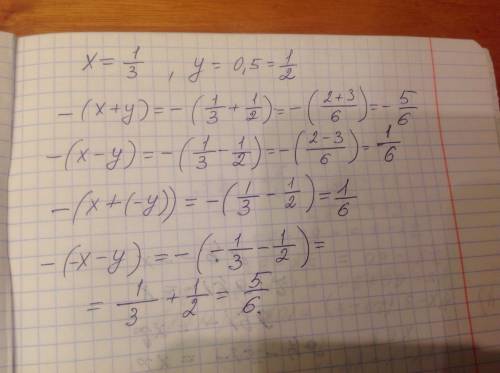 x = 1/3 , y = 0,5 = 1/2
-(x+y) = -(1/3 + 1/2) = -(2+3/6) = -5/6
-(x-y) = -(1/3 - 1/2) = -(2-3/6) = 1/6
-(x+(-y)) = -(1/3 - 1/2) = 1/6
-(-x-y) = -(-1/3 - 1/2) =
= 1/3 + 1/2 = 5/6.